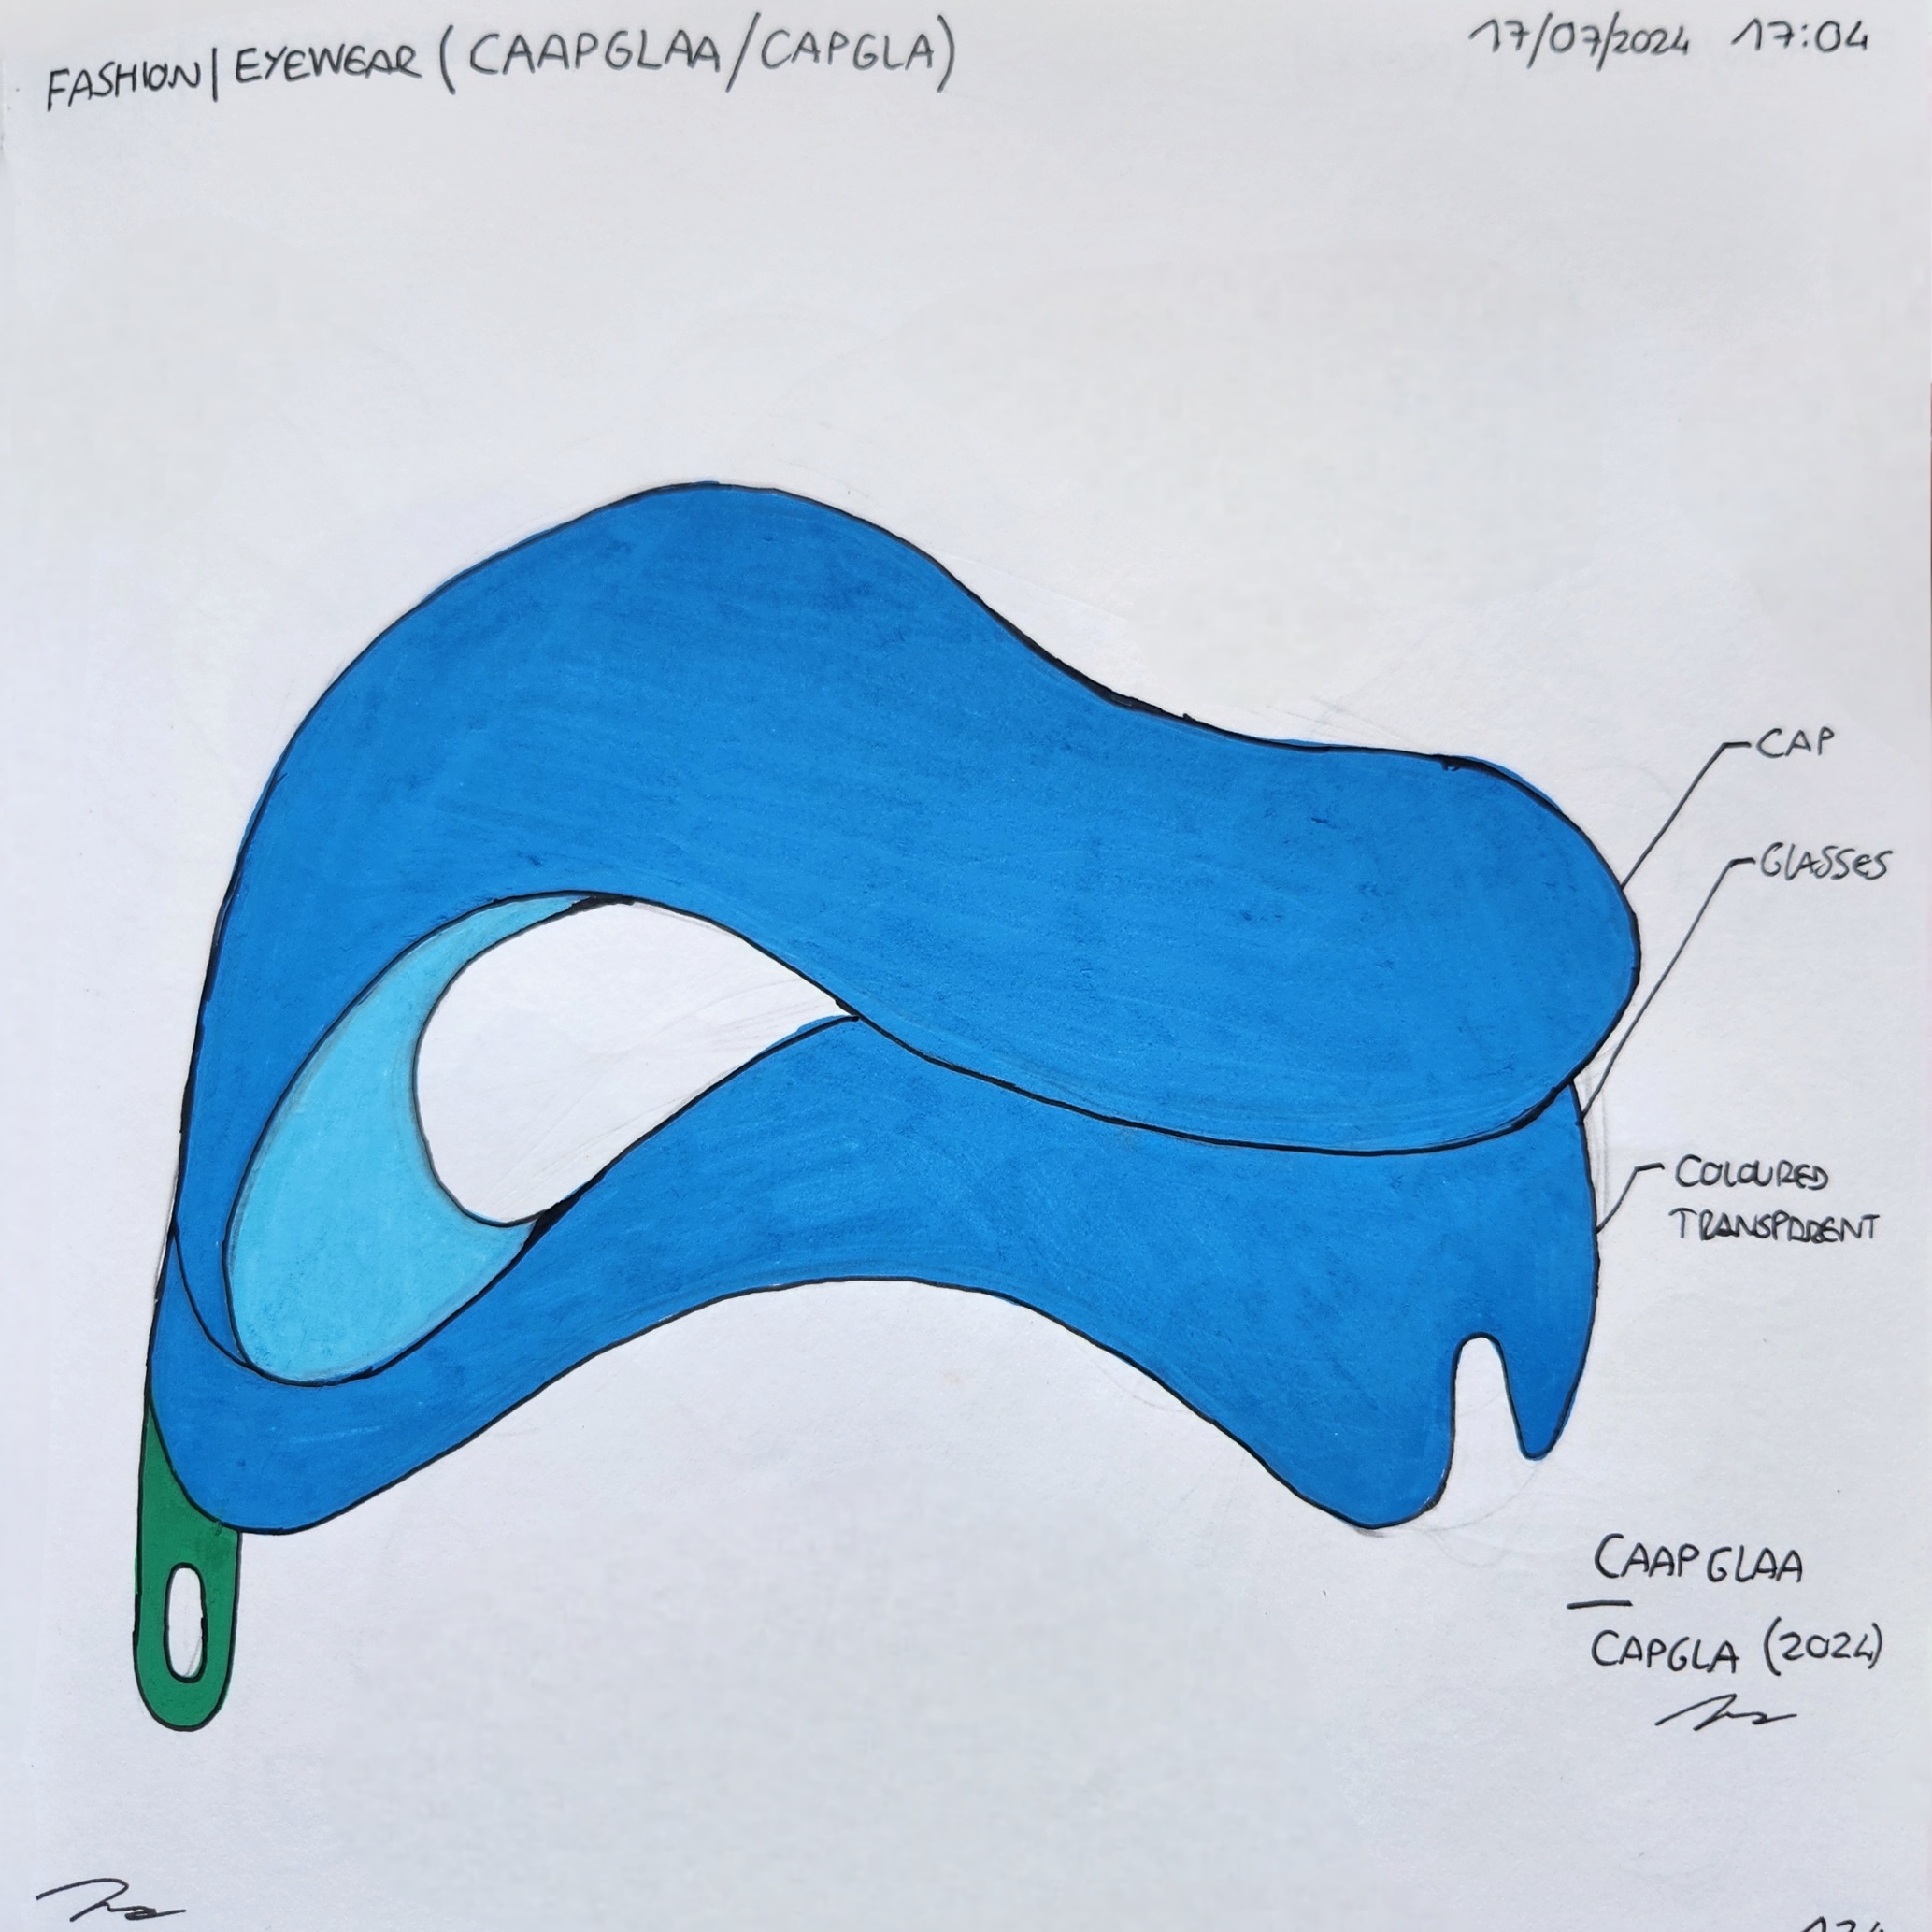 FASHION | EYEWEAR (CAAPGLAA/CAPGLA)
17/07/2024 17:04
CAP
GLASSES
COLOURED
TRANSPARENT
CAAPGLAA
CAPGLA (2024)